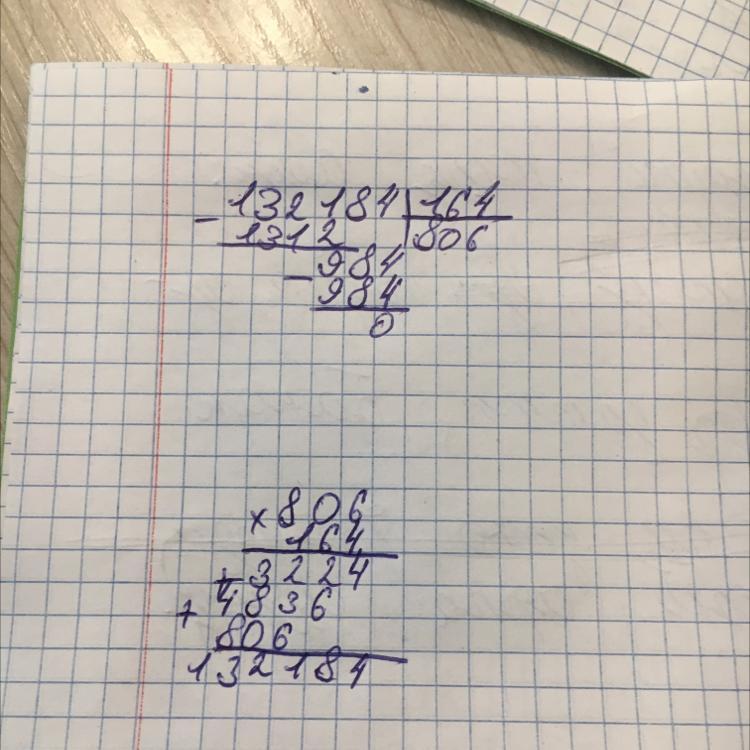 - 132184 | 164
1312 | 806
- 984
984
0
× 806
164
+ 3224
+ 4836
806
132184